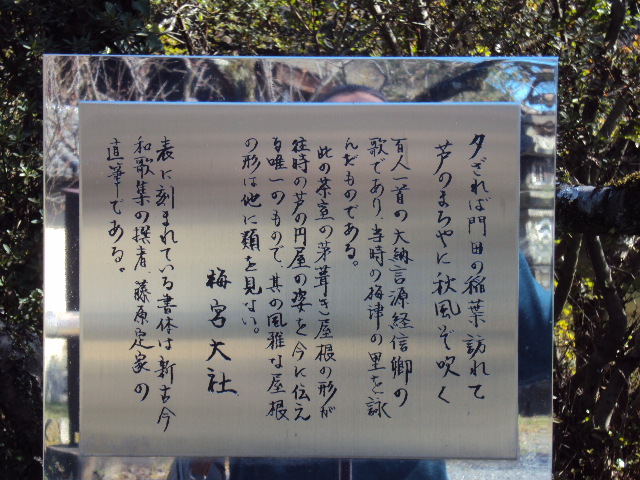 夕ざれば門田の稲葉訪れて
芦のまろやに秋風ぞ吹く
百人一首の大納言源経信卿の
歌であり、当時の梅津の里を詠
んだものである。
此の茶室の茅葺き屋根の形が
往時の芦の円屋の姿を今に伝え
る唯一のもので、其の風雅な屋根
の形は他に類を見ない。
梅宮大社
表に刻まれている書体は新古今
和歌集の撰者、藤原定家の
直筆である。